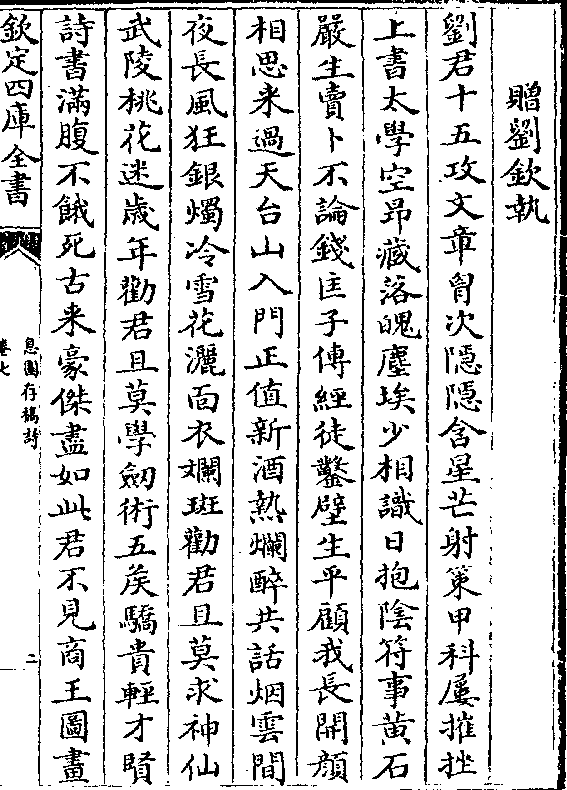 贈劉欽執
劉君十五攻文章胷次隠隠含星芒射策甲科屢摧挫
上書太學空昻藏落魄塵埃少相識日抱陰符事黄石
嚴生賣卜不論錢匡子傳經徒鑿壁生平顧我長開顔
相思来過天台山入門正值新酒熟爛醉共話烟雲間
夜長風狂銀燭冷雪花灑面衣斕斑勸君且莫求神仙
武陵桃花迷歳年勸君且莫學劒術五矦驕貴輕才賢
詩書滿腹不餓死古来豪傑盡如此君不見商王圖畫
欽定四庫全書
息園存稿詩
卷七
二